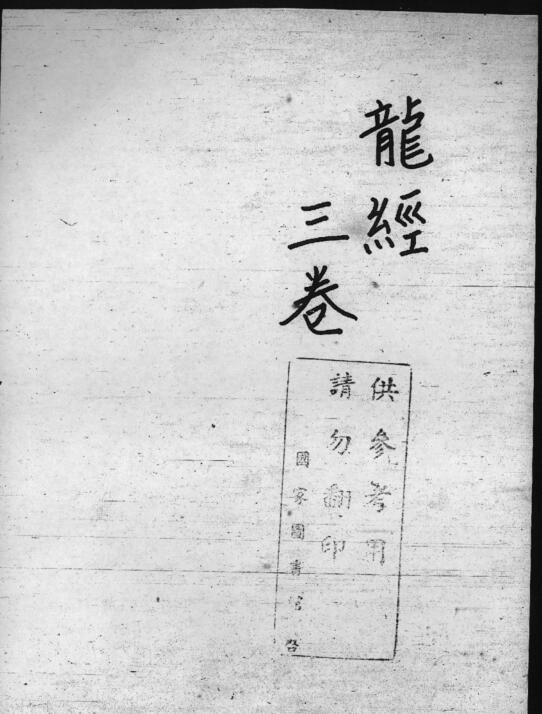 龍經
三卷
供參考用
請勿翻印
國家圖書館啓